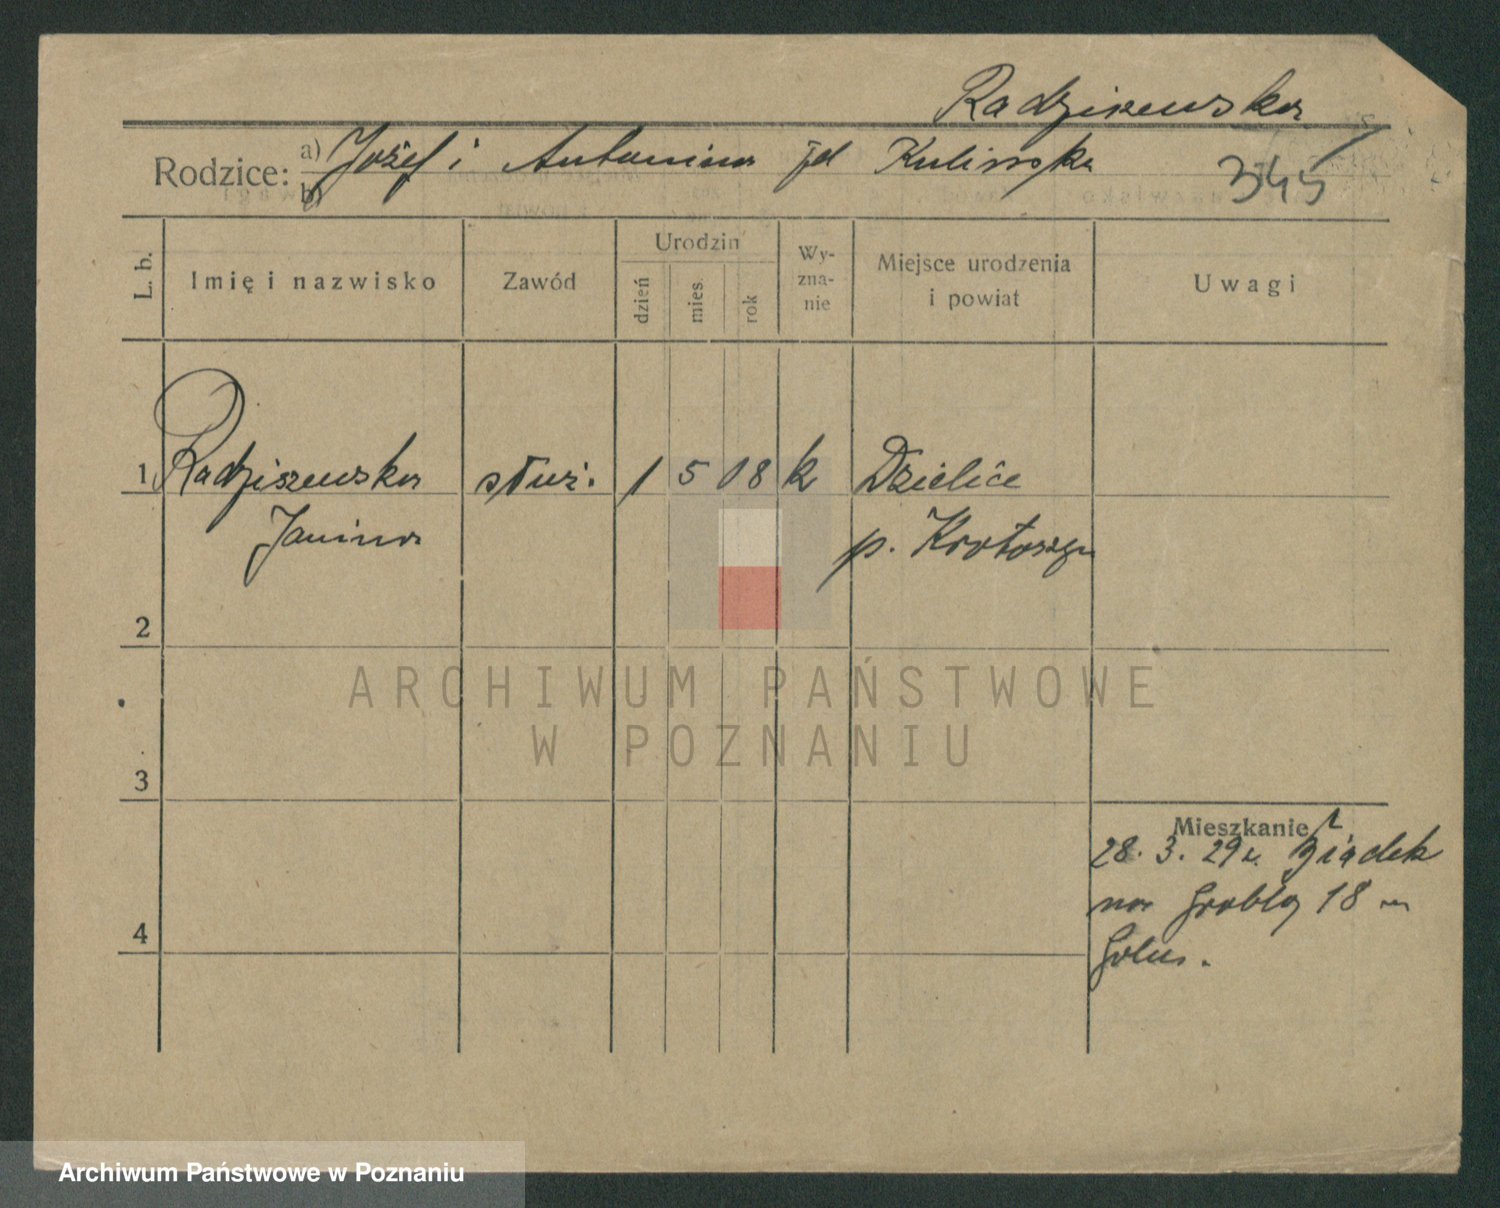 Radziszewska
Rodzice: a) Józef i Antonina zd Kulińska
b)
345
L. b. Imię i nazwisko Zawód Urodzin dzień mies. rok Wy-zna-nie Miejsce urodzenia i powiat Uwagi
1 Radziszewska służ. 1 5 08 k Dzielice
Janina p. Krotoszyn
2
3
4
Mieszkanie
28. 3. 29 r. Ziądek
na Groblą 18 m
Golus.
ARCHIWUM PAŃSTWOWE
W POZNANIU
Archiwum Państwowe w Poznaniu